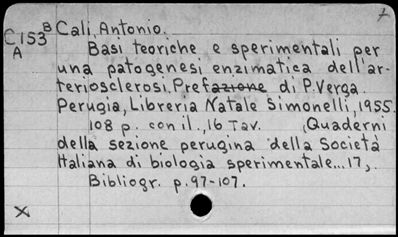 C153 B Cali, Antonio.
A Basi teoriche e sperimentali per
una patogenesi enzimatica dell'ar-
teriosclerosi. Prefazione di P. Verga.
Perugia, Libreria Natale Simonelli, 1955.
108 p. con il., 16 Tav. (Quaderni
della sezione perugina della Società
Italiana di biologia sperimentale... 17).
Bibliogr. p. 97-107.
X